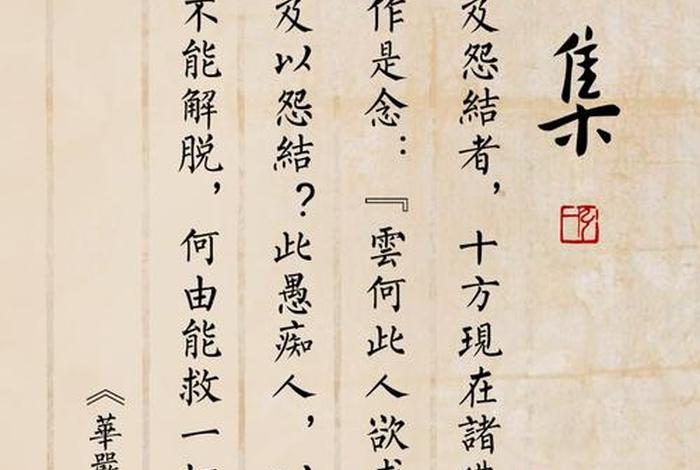 集
及怨結者，十方現在諸
作是念：『雲何此人欲
及以怨結？此愚痴人，
不能解脱，何由能救一
《華嚴